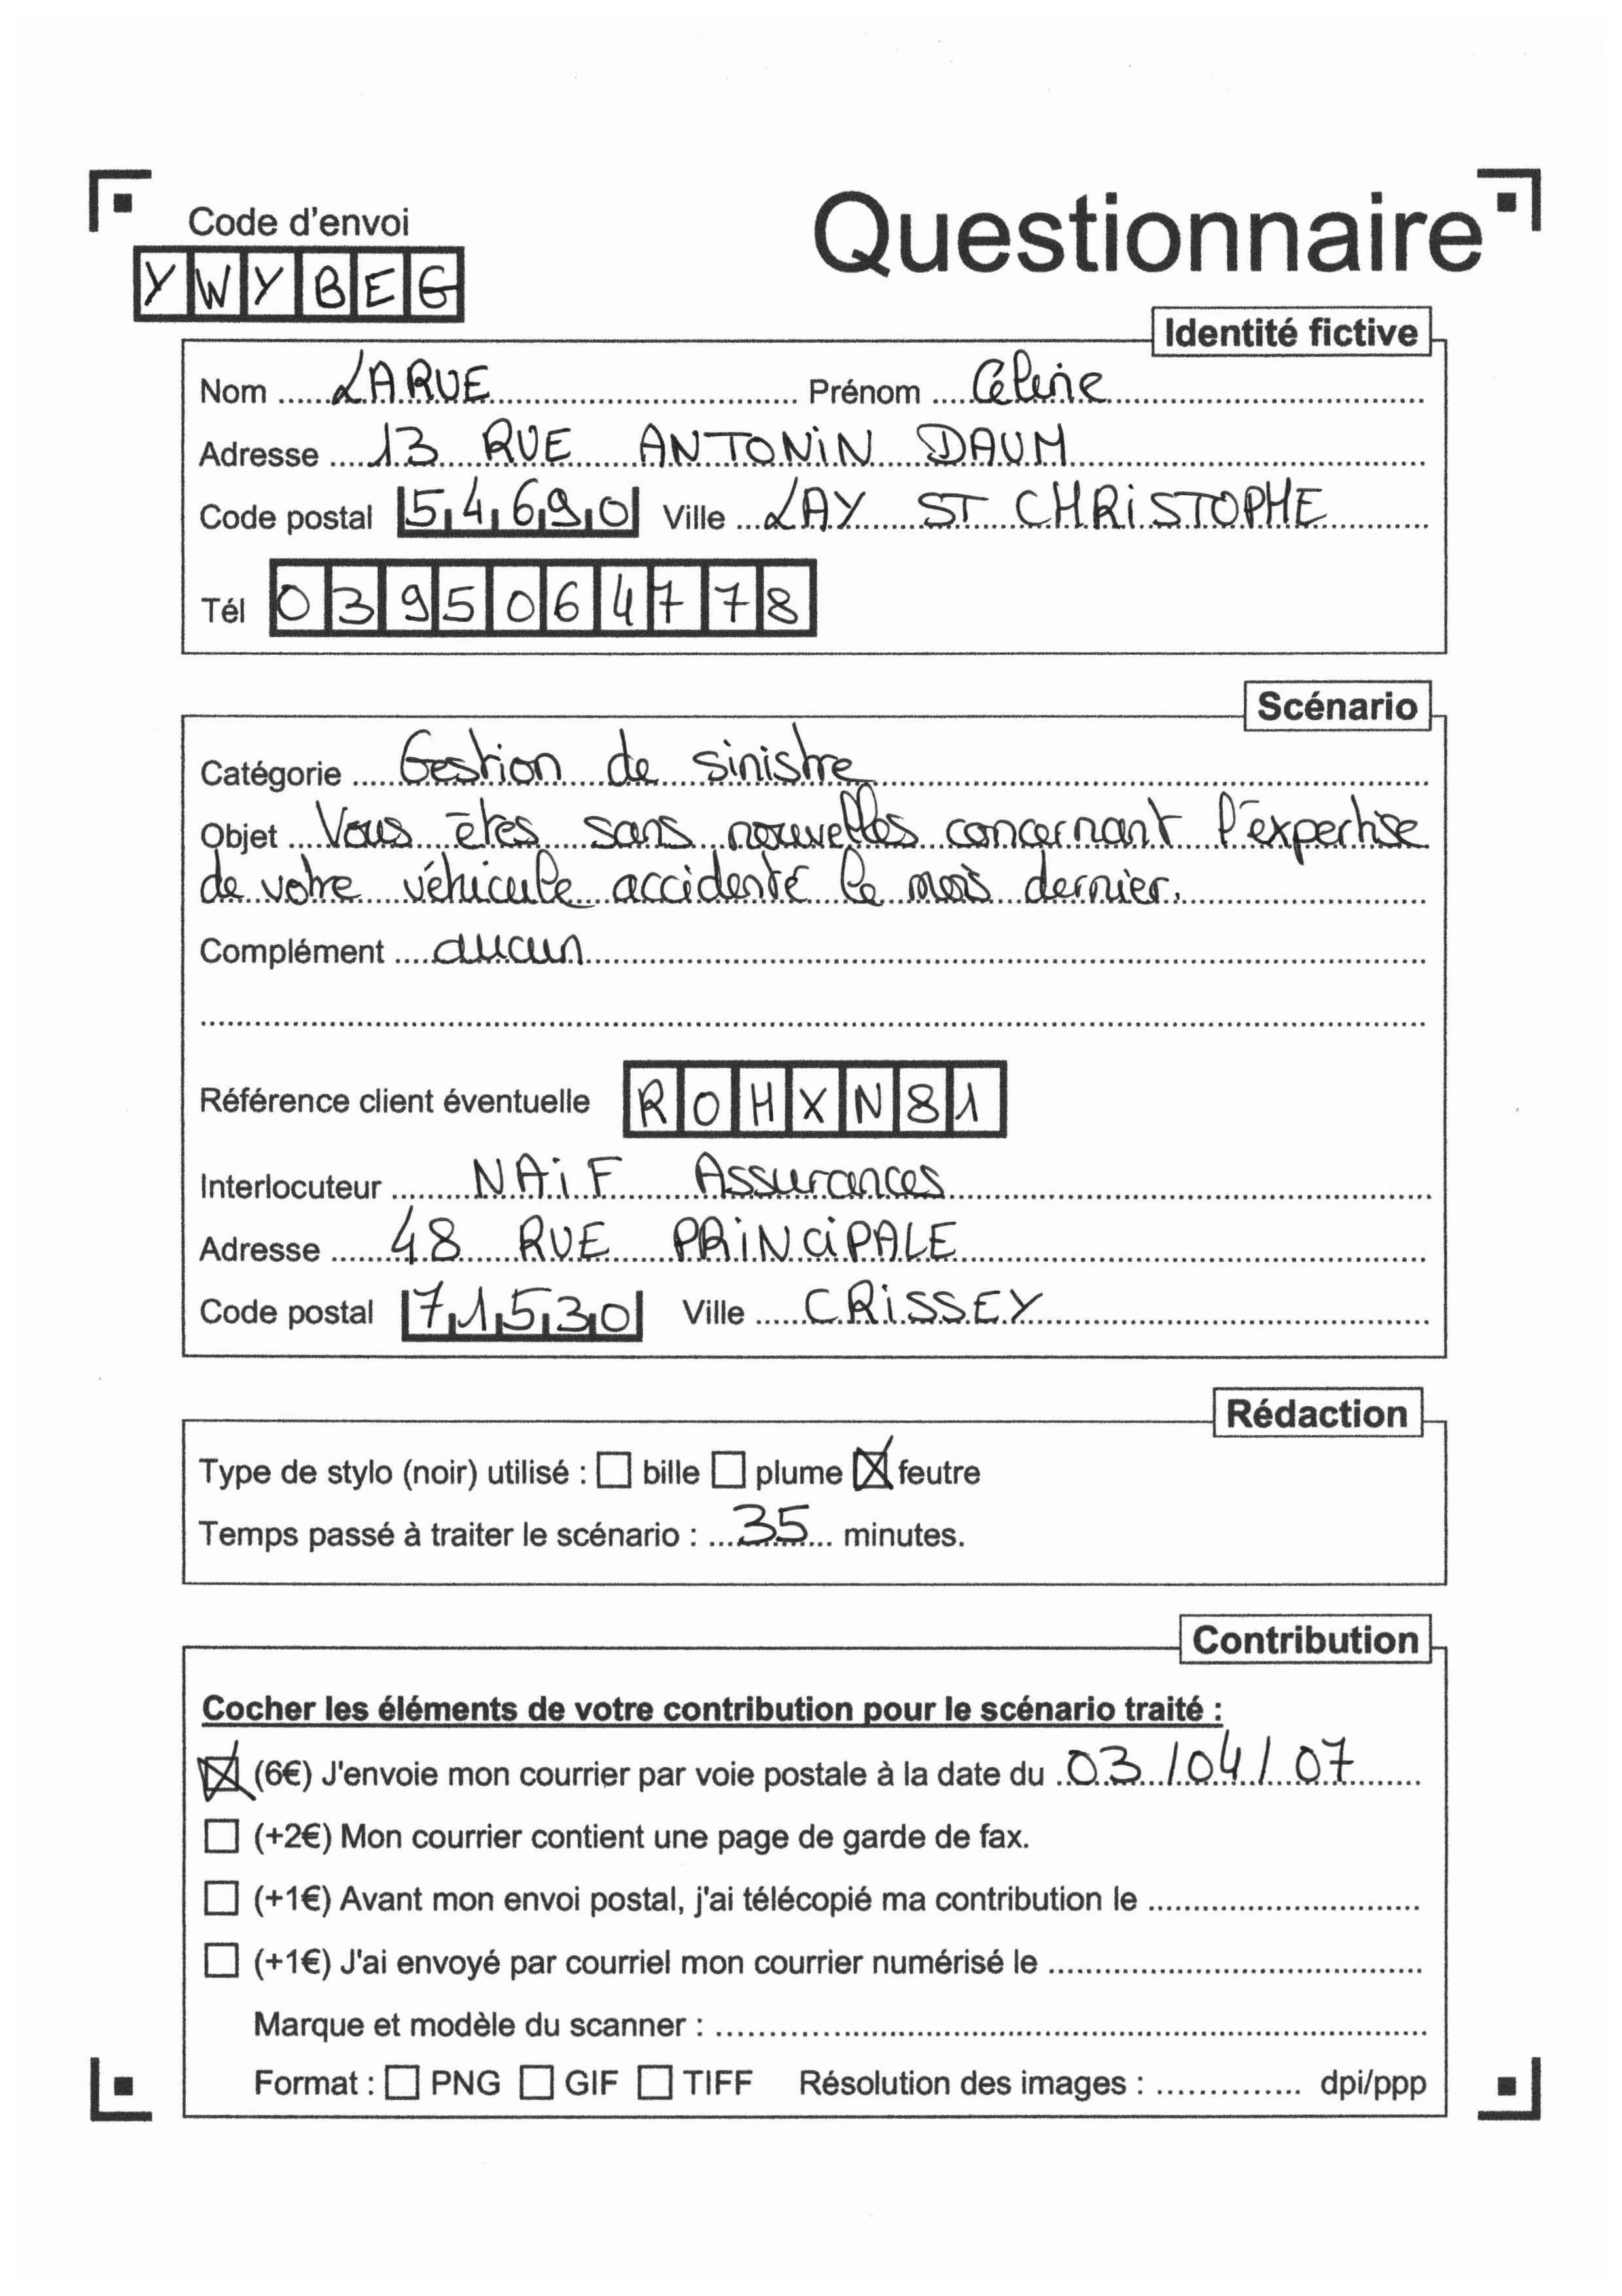 Questionnaire
Code d'envoi
YWYBEG
Identité fictive
Nom LARUE Prénom Céline
Adresse 13 RUE ANTONIN DAUM
Code postal 54690 Ville LAY ST CHRISTOPHE
Tél 0395064778
Scénario
Catégorie Gestion de sinistre
Objet Vous êtes sans nouvelles concernant l'expertise
de votre véhicule accidenté le mois dernier.
Complément aucun
Référence client éventuelle ROHXN81
Interlocuteur NAiF Assurances
Adresse 48 RUE PRiNCiPALE
Code postal 71530 Ville CRiSSEY
Rédaction
Type de stylo (noir) utilisé : ☐ bille ☐ plume ☒ feutre
Temps passé à traiter le scénario : 35 minutes.
Contribution
Cocher les éléments de votre contribution pour le scénario traité :
☒ (6€) J'envoie mon courrier par voie postale à la date du 03/04/07
☐ (+2€) Mon courrier contient une page de garde de fax.
☐ (+1€) Avant mon envoi postal, j'ai télécopié ma contribution le
☐ (+1€) J'ai envoyé par courriel mon courrier numérisé le
Marque et modèle du scanner :
Format : ☐ PNG ☐ GIF ☐ TIFF Résolution des images : dpi/ppp